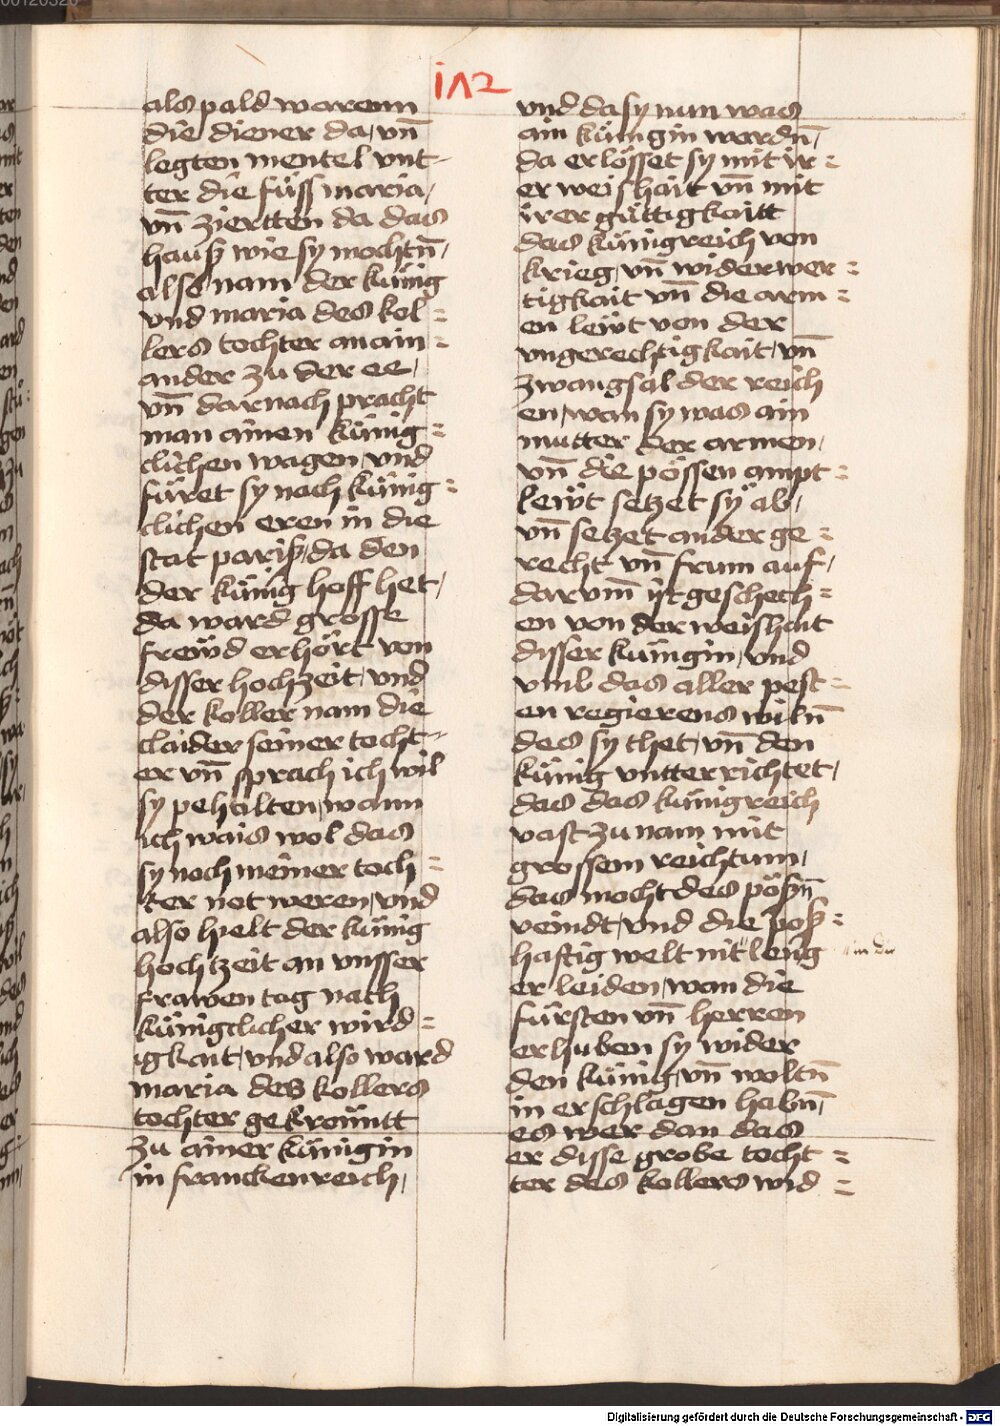 i∧2
als pald warenn
die diener da, vn̄
legten mentel vnt-
ter die füss maria,
vn̄ ziertten da das
hausz wie sy mochtn̄,
also nam der künig
vnd maria des kol=
lers tochter an ain=
ander zu der ee,
vn̄ darnach pracht
man ainen künig=
clichen wagen, vnd
füret sy nach künig=
clichen eren in die
stat parisz, da den
der künig hoff het,
da ward grosse
freẅd erhört von
disser hochzeit, vnd
der koller nam die
claider seiner tocht-
er vn̄ sprach ich wil
sy pehalten, wann
ich wais wol das
sy noch meiner toch=
ter not weren, vnd
also hielt der künig
hochtzeit an vnsser
frawen tag nach
künigclicher wird=
igkait, vnd also ward
maria des kollers
tochter gekrönntt
zu ainer künigin
in franckenreich,
vnd da sy nun was
ain künigin wordn̄,
da erlösset sy mit ir=
er weishait vn̄ mit
irer güttigkaitt
das künigreich von
krieg, vn̄ widerwer=
tigkait vn̄ die arm=
en leẅt von der
vngerechtigkait, vn̄
zwangsal der reich
en, wan sy was ain
mutter der armen,
vn̄ die pössen ampt=
leẅt setzet sy ab,
vn̄ setzet ander ge=
recht vn̄ frum auf,
darvm̄ ist geschech=
en von der weishait
disser künigin, vnd
vmb das aller pest=
en regierens wiln̄
des sy thet, vn̄ den
künig vntterrichtet,
das das künigreich
vast zu nam mit
grossem reichtum,
das mocht des pöszn̄
veindt, vnd die posz=
haftig welt nit leng
er leiden, wan die
fürsten vn̄ herren
erhuben sy wider
den künig, vn̄ woltn̄
in erschlagen habn̄,
es wer dan das
er disse grobe tocht=
ter des kollers wid=
Digitalisierung gefördert durch die Deutsche Forschungsgemeinschaft - DFG